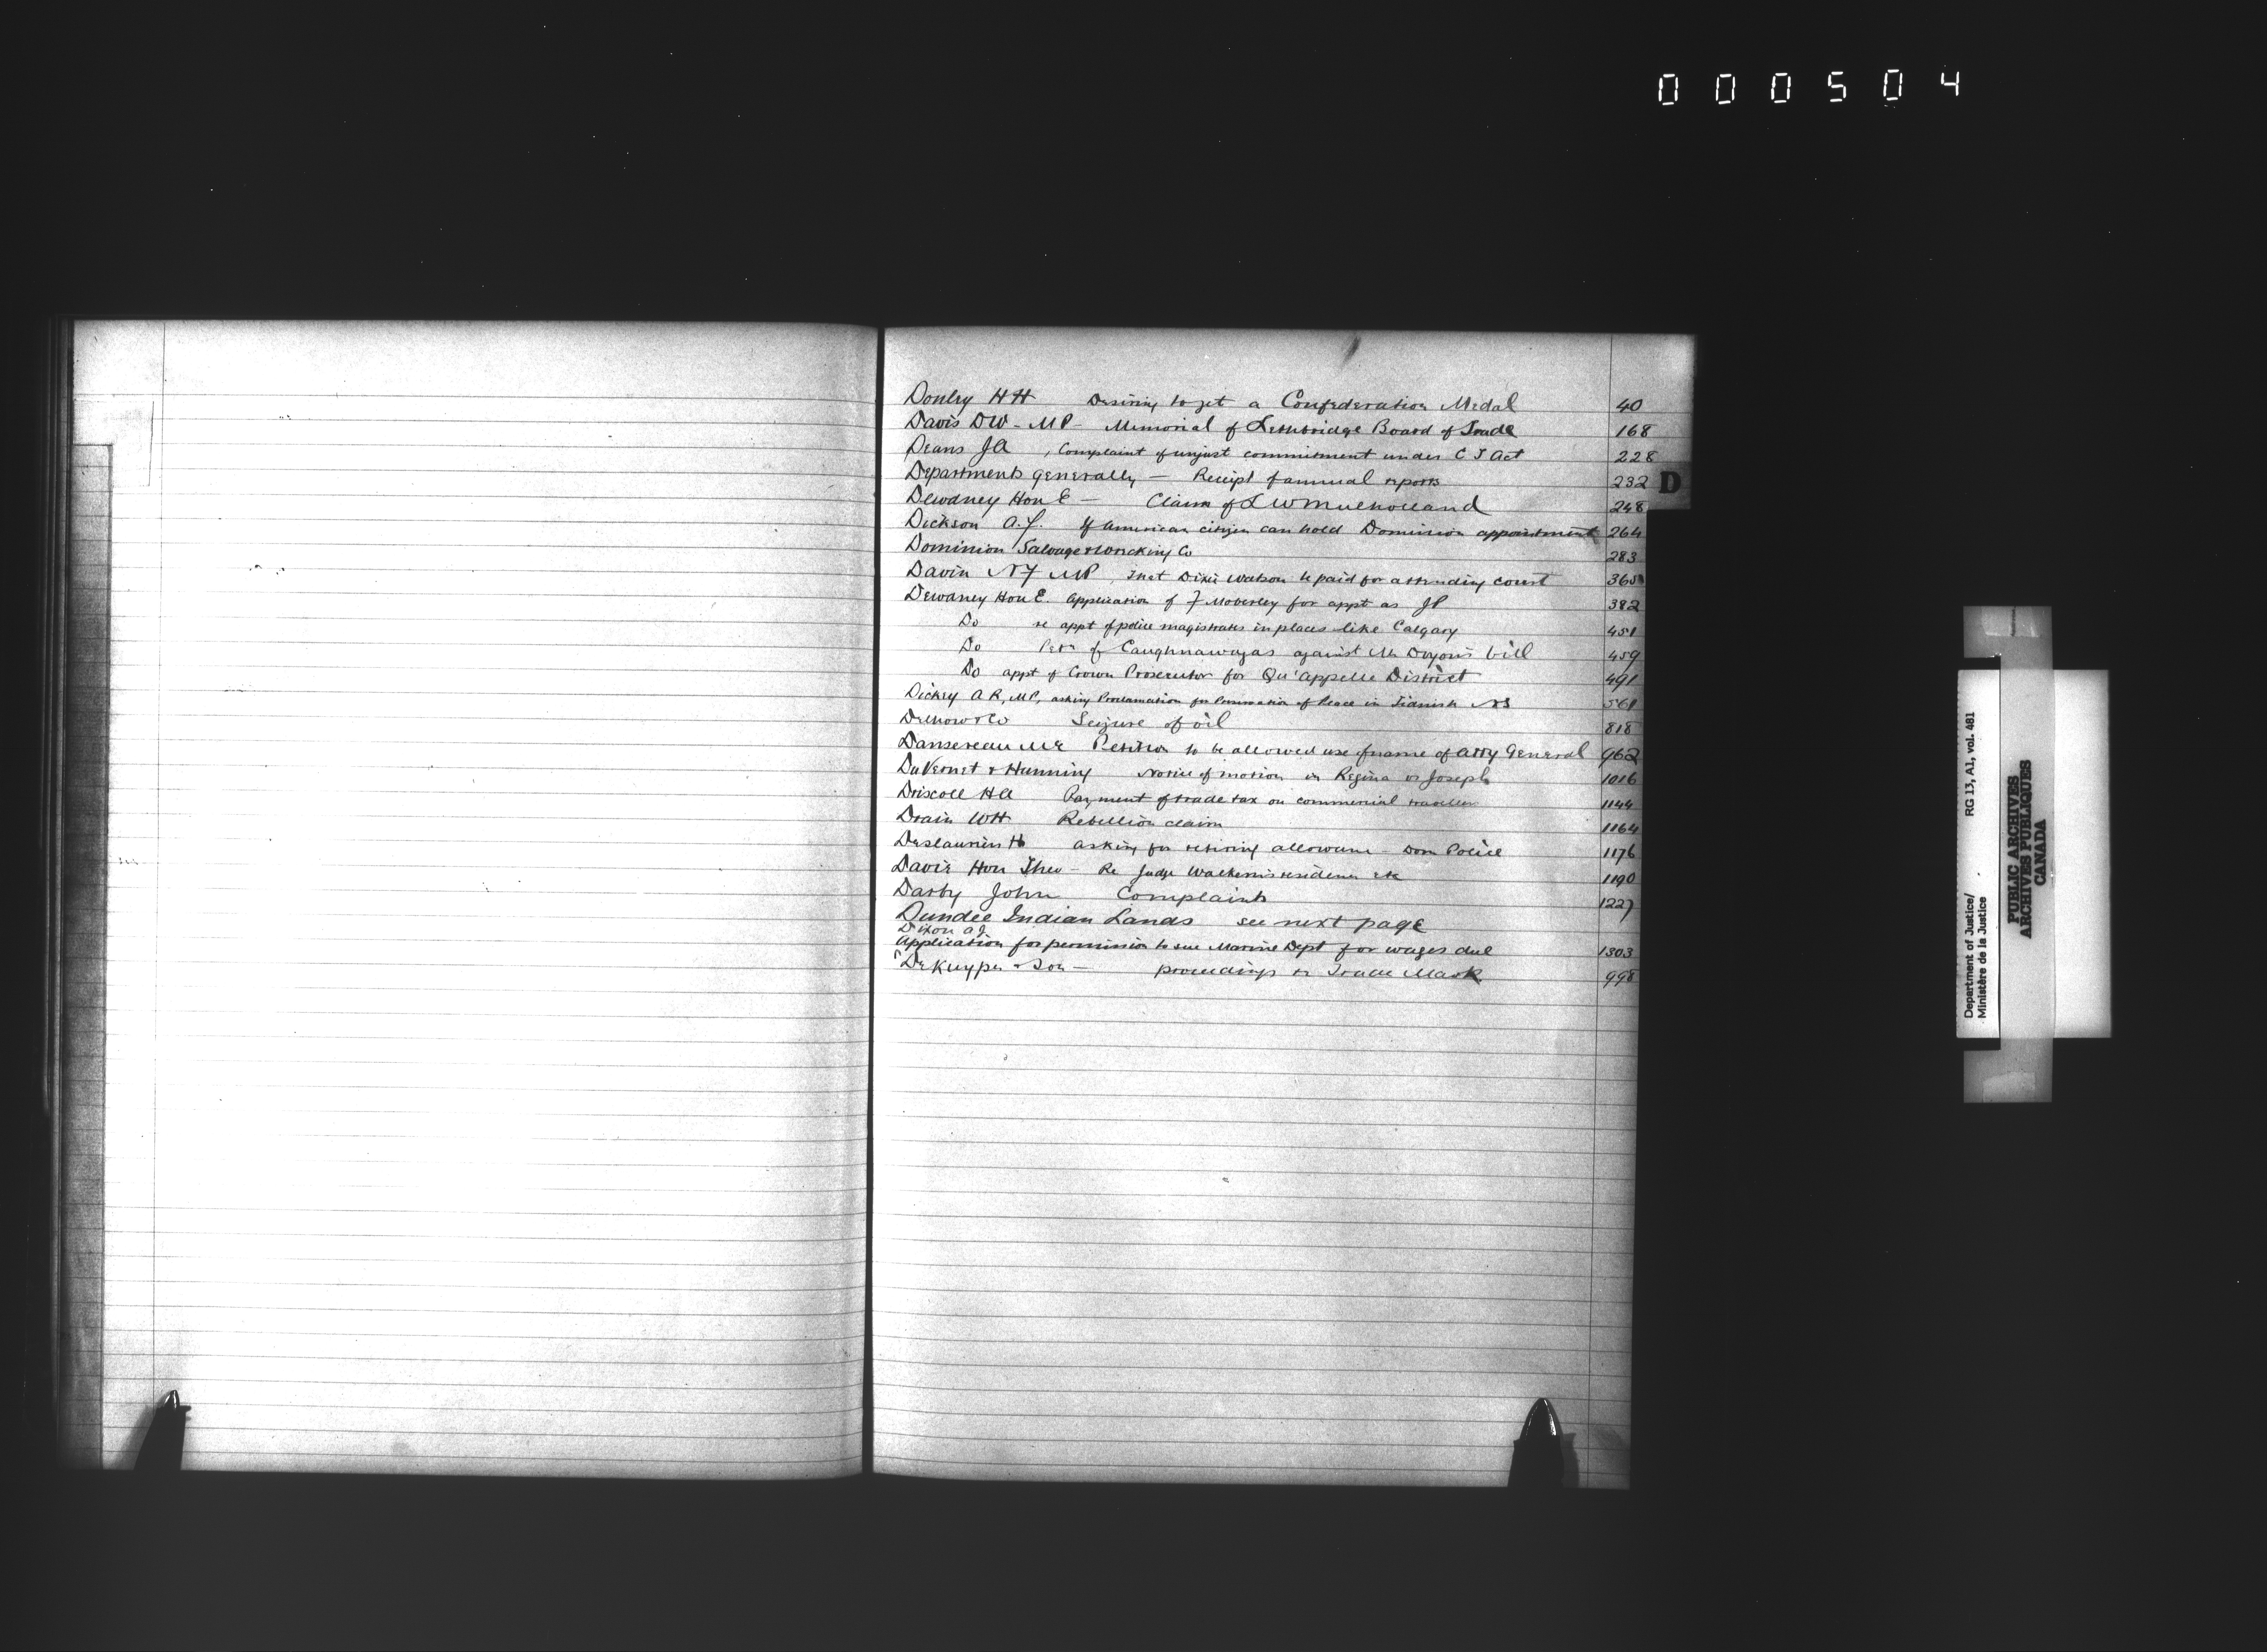 000504
Donley HH Desiring to get a Confederation Medal 40
Davis DW - MP - Memorial of Lethbridge Board of Trade 168
Deans JA, Complaint of unjust commitment under C T Act 228
Departments generally - Receipt of annual reports 232
D
Dewdney Hon E - Claim of L W Mulholland 248
Dickson A.J. If American citizen can hold Dominion appointment 264
Dominion Salvage & Wrecking Co 283
Davin NF MP, that Dixie Watson be paid for attending court 365
Dewdney Hon E. Application of F Moberley for appt as JP 382
Do re appt of police magistrates in places like Calgary 451
Do Petn of Caughnawagas against Mr Doyon's bill 459
Do appt of Crown Prosecutor for Qu'Appelle District 491
Dickey A R, MP, asking Proclamation for Preservation of Peace in Tidnish NS 561
& Co Seizure of oil 818
Dansereau Petition to be allowed use of name of Atty General 962
DuVernet & Hanning Notice of motion in Regina vs Joseph 1016
Driscoll HA Payment of trade tax on commercial traveller 1144
Drain WH Rebellion claim 1164
Deslauriers H asking for retiring allowance - Dom Police 1176
Davie Hon Theo - Re Judge Walkem's residence etc 1190
Darby John Complaint 1227
Dundee Indian Lands see next page
Dixon AJ
Application for permission to sue Marine Dept for wages due 1303
DeKuyper & Son - proceedings re Trade Mark 998
Department of Justice/ RG 13, A1, vol. 481
Ministère de la Justice
PUBLIC ARCHIVES
ARCHIVES PUBLIQUES
CANADA